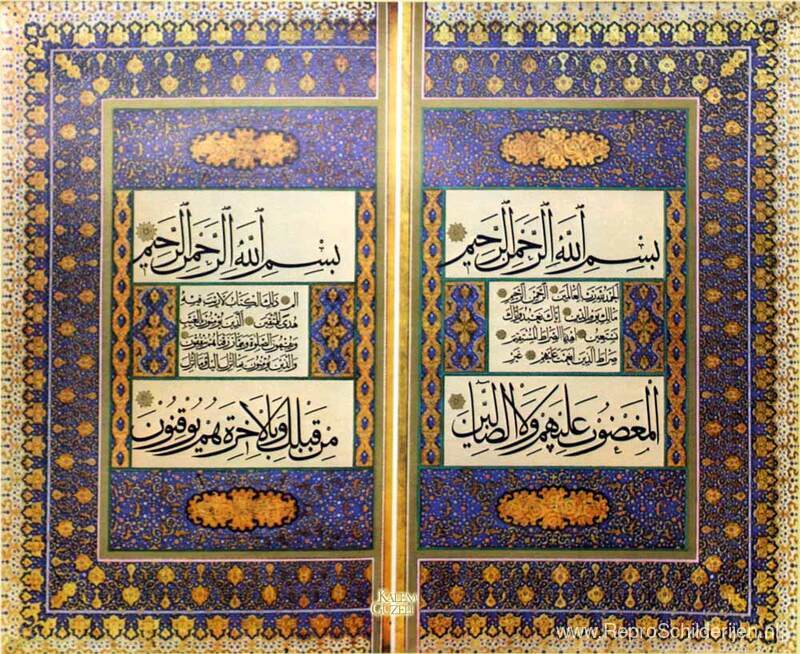 بسم الله الرحمن الرحيم
الحمد لله رب العالمين الرحمن الرحيم
مالك يوم الدين اياك نعبد واياك
نستعين اهدنا الصراط المستقيم
صراط الذين انعمت عليهم غير
المغضوب عليهم ولا الضالين
بسم الله الرحمن الرحيم
الم ذلك الكتاب لا ريب فيه
هدى للمتقين الذين يؤمنون بالغيب
ويقيمون الصلوة ومما رزقناهم ينفقون
والذين يؤمنون بما انزل اليك وما انزل
من قبلك وبالاخرة هم يوقنون
KALEM
GUZELI
www.ReproSchilderijen.nl